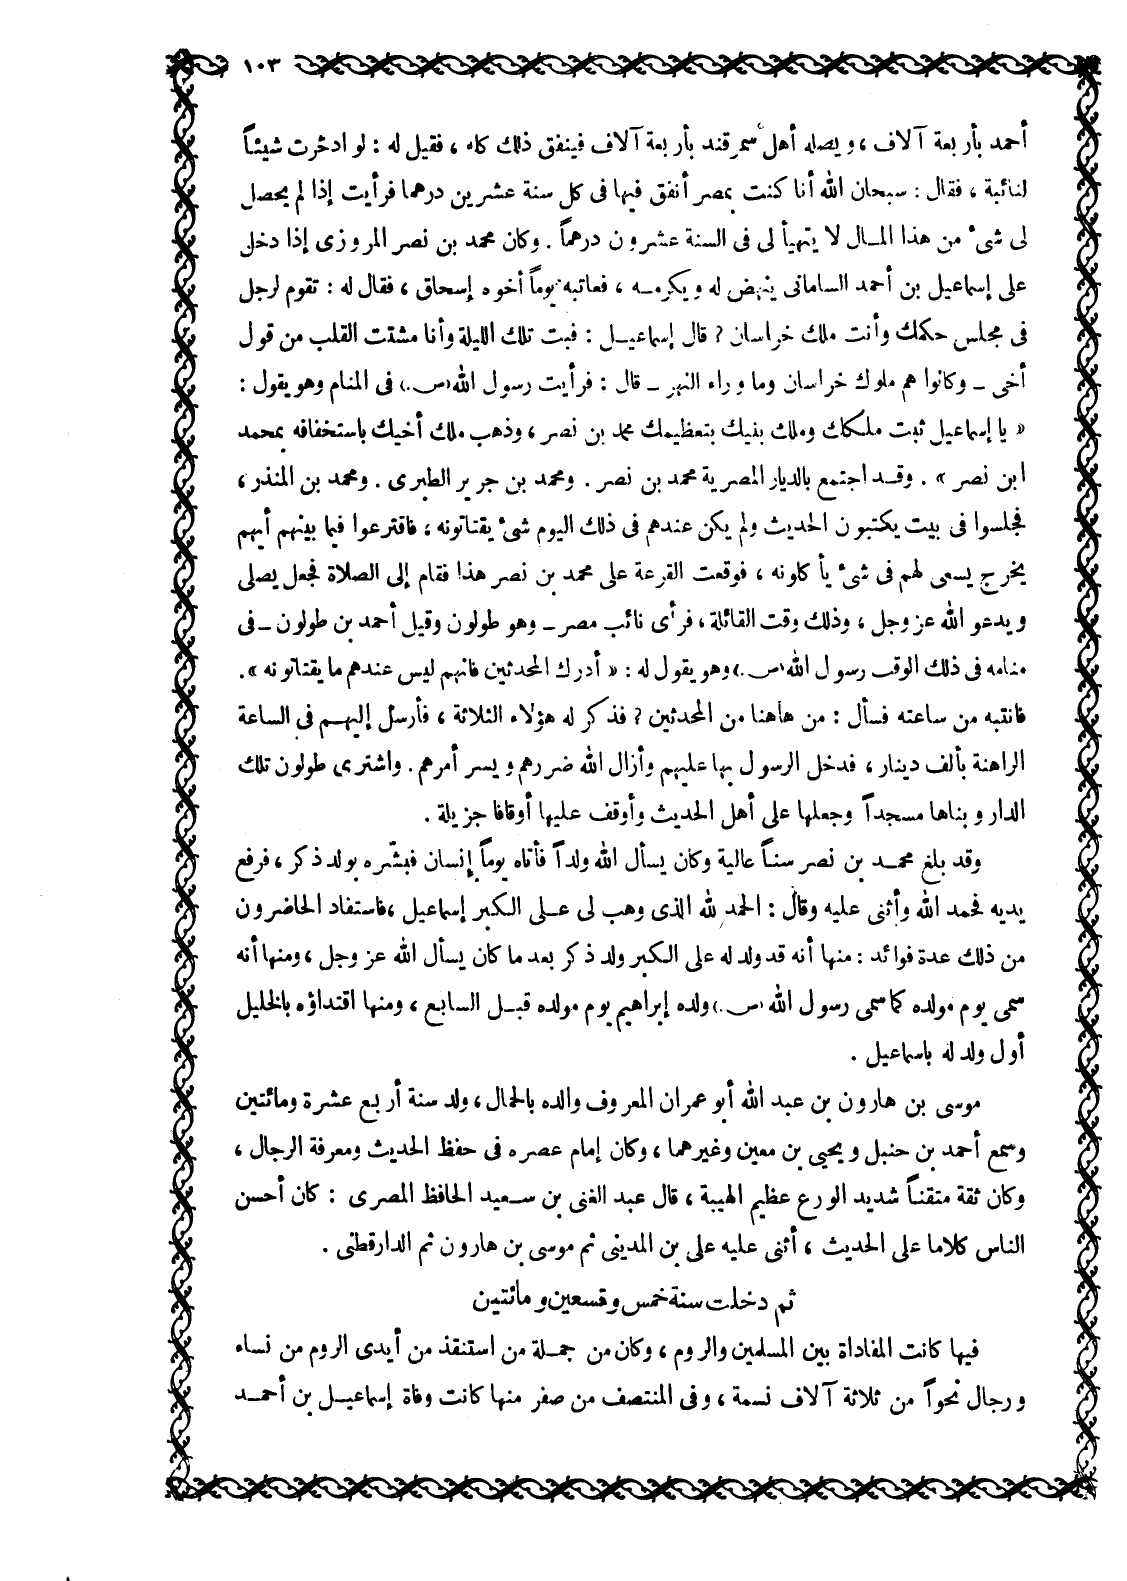 ١٠٣
أحمد بأربعة آلاف ، ويصله أهل سمرقند بأربعة آلاف فينفق ذلك كله ، فقيل له : لو ادخرت شيئاً
لنائبة ، فقال : سبحان الله أنا كنت بمصر أنفق فيها فى كل سنة عشرين درهما فرأيت إذا لم يحصل
لى شئ من هذا المـال لا يتهيأ لى فى السنة عشرون درهماً . وكان محمد بن نصر المروزى إذا دخل
على إسماعيل بن أحمد السامانى ينهض له ويكرمـه ، فعاتبه يوماً أخوه إسحاق ، فقال له : تقوم لرجل
فى مجلس حكمك وأنت ملك خراسان ? قال إسماعيـل : فبت تلك الليلة وأنا مشتت القلب من قول
أخى ـ وكانوا هم ملوك خراسان وما وراء النهر ـ قال : فرأيت رسول الله (ص.) فى المنام وهو يقول :
« يا إسماعيل ثبت ملكك وملك بنيك بتعظيمك محمد بن نصر ، وذهب ملك أخيك باستخفافه بمحمد
ابن نصر » . وقـد اجتمع بالديار المصرية محمد بن نصر . ومحمد بن جرير الطبرى . ومحمد بن المنذر ،
فجلسوا فى بيت يكتبون الحديث ولم يكن عندهم فى ذلك اليوم شئ يقتاتونه ، فاقترعوا فيما بينهم أيهم
يخرج يسعى لهم فى شئ يأكلونه ، فوقعت القرعة على محمد بن نصر هذا فقام إلى الصلاة فجعل يصلى
ويدعو الله عز وجل ، وذلك وقت القائلة ، فرأى نائب مصر ـ وهو طولون وقيل أحمد بن طولون ـ فى
منامه فى ذلك الوقت رسول الله (ص.) وهو يقول له : « أدرك المحدثين فانهم ليس عندهم ما يقتاتونه » .
فانتبه من ساعته فسأل : من هاهنا من المحدثين ? فذكر له هؤلاء الثلاثة ، فأرسل إليهـم فى الساعة
الراهنة بألف دينار ، فدخل الرسول بها عليهم وأزال الله ضررهم ويسر أمرهم . واشترى طولون تلك
الدار وبناها مسجداً وجعلها على أهل الحديث وأوقف عليها أوقافا جزيلة .
وقد بلغ محمـد بن نصر سنـاً عالية وكان يسأل الله ولداً فأتاه يوماً إنسان فبشّره بولد ذكر ، فرفع
يديه فحمد الله وأثنى عليه وقال : الحمد لله الذى وهب لى عـلى الكبر إسماعيل ، فاستفاد الحاضرون
من ذلك عدة فوائد : منها أنه قد ولد له على الكبر ولد ذكر بعد ما كان يسأل الله عز وجل ، ومنها أنه
سمى يوم مولده كما سمى رسول الله (ص.) ولده إبراهيم يوم مولده قبـل السابع ، ومنها اقتداؤه بالخليل
أول ولد له باسماعيل .
موسى بن هارون بن عبد الله أبو عمران المعروف والده بالحمال ، ولد سنة أربع عشرة ومائتين
وسمع أحمد بن حنبل ويحيى بن معين وغيرهما ، وكان إمام عصره فى حفظ الحديث ومعرفة الرجال ،
وكان ثقة متقنـاً شديد الورع عظيم الهيبة ، قال عبد الغنى بن سـعيد الحافظ المصرى : كان أحسن
الناس كلاما على الحديث ، أثنى عليه على بن المدينى ثم موسى بن هارون ثم الدارقطنى .
ثم دخلت سنة خمس وتسعين ومائتين
فيها كانت المفاداة بين المسلمين والروم ، وكان من جمـلة من استنقذ من أيدى الروم من نساء
ورجال نحواً من ثلاثة آلاف نسمة ، وفى المنتصف من صفر منها كانت وفاة إسماعيـل بن أحمـد